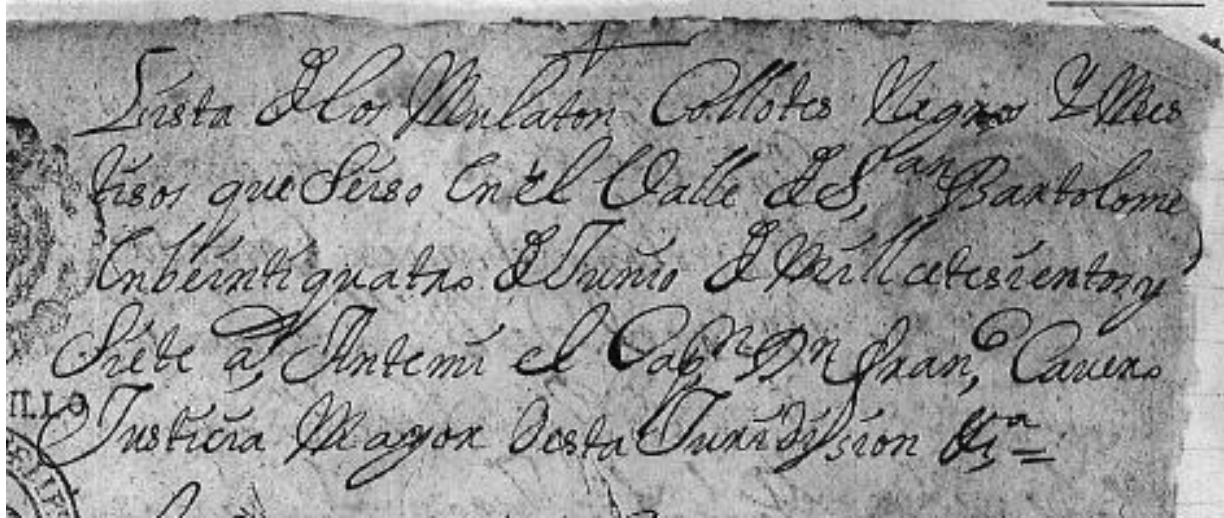 Lista de los Mulatos Collotes Negros Y Mes
tisos que Seiso En el Valle de S,an Bartolome
En beinti quatro de Junio de Mill cetesientos y
Siete as, Antemi el Capn Dn franco, Cavero
Justicia Mayor desta Juridision
ILLO